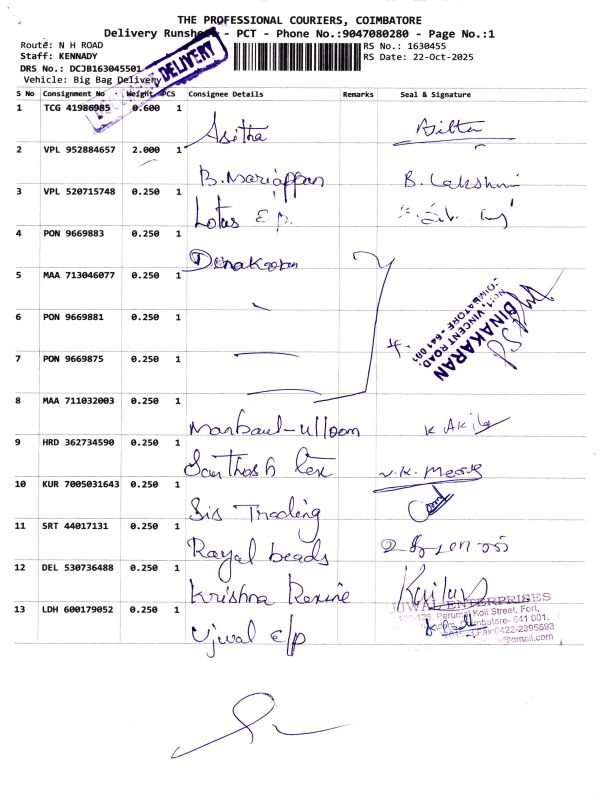 THE PROFESSIONAL COURIERS, COIMBATORE
Delivery Runsheet - PCT - Phone No.:9047080280 - Page No.:1
Route: N H ROAD
RS No.: 1630455
Staff: KENNADY
RS Date: 22-Oct-2025
DRS No.: DCJB163045501
Vehicle: Big Bag Delivery
DELIVERY
S No Consignment No Weight PCS Consignee Details Remarks Seal & Signature
1 TCG 41986985 0.600 1 Asitha
2 VPL 952884657 2.000 1 B. Mariappan B. Lakshmi
3 VPL 520715748 0.250 1 Lotus E/p.
4 PON 9669883 0.250 1 Dinakaran
5 MAA 713046077 0.250 1
6 PON 9669881 0.250 1
7 PON 9669875 0.250 1
4.
DINAKARAN
No:1, VINCENT ROAD,
COIMBATORE - 641 001
8 MAA 711032003 0.250 1 Manbaul-ulloom K Akila
9 HRD 362734590 0.250 1 Santhosh Tex
10 KUR 7005031643 0.250 1 Sis Trading
11 SRT 44017131 0.250 1 Royal beads
12 DEL 530736488 0.250 1 Krishna Rexine
13 LDH 600179052 0.250 1 Ujwal E/p
UJWAL ENTERPRISES
Perumal Koil Street, Fort,
Coimbatore- 641 001.
Fax:0422-2395693
@gmail.com